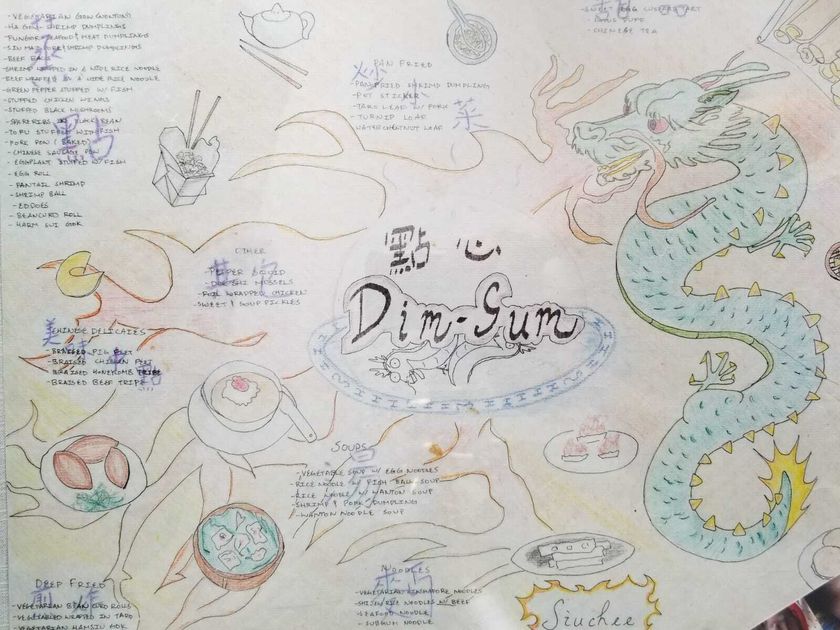 - VEGETARIAN GOW (WONTON)
- HA GOW SHRIMP DUMPLINGS
- FUNGOR SEAFOOD & MEAT DUMPLINGS
- SIU MAI PORK & SHRIMP DUMPLINGS
- BEEF BALL
- SHRIMP WRAPPED IN A WIDE RICE NOODLE
- BEEF WRAPPED IN A WIDE RICE NOODLE
- GREEN PEPPER STUFFED W/ FISH
- STUFFED CHICKEN WINGS
- STUFFED BLACK MUSHROOMS
- SPARERIBS IN BLACK BEAN
- TOFU STUFFED WITH FISH
- PORK POW (BAKED)
- CHINESE SAUSAGE POW
- EGGPLANT STUFFED W/ FISH
- EGG ROLL
- FANTAIL SHRIMP
- SHRIMP BALL
- EDDOES
- BEANCURD ROLL
- HARM SUI GOOK
點
PAN FRIED
- PAN FRIED SHRIMP DUMPLING
- POT STICKER
- TARO LEAF W/ PORK
- TURNIP LOAF
- WATERCHESTNUT LOAF
炒
菜
EGG CUSTARD TART
- LOTUS PUFF
- CHINESE TEA
OTHER
- PEPPER SQUID
- DOUSHI MUSSELS
- FOIL WRAPPED CHICKEN
- SWEET & SOUR PICKLES
點心
Dim-Sum
CHINESE DELICACIES
美
- BRAISED PIG FEET
- BRAISED CHICKEN FEET
- BRAISED HONEYCOMB TRIPE
- BRAISED BEEF TRIPE
SOUPS
- VEGETABLE SOUP W/ EGG NOODLES
- RICE NOODLE W/ FISH BALL SOUP
- RICE NOODLE W/ WANTON SOUP
- SHRIMP & PORK DUMPLING
- WANTON NOODLE SOUP
DEEP FRIED
- VEGETARIAN BEAN CURD ROLLS
- VEGETABLES WRAPPED IN TARO
- VEGETARIAN HAMSIU GOK
NOODLES
- VEGETARIAN SINGAPORE NOODLES
- SHISEN RICE NOODLES W/ BEEF
- SEAFOOD NOODLE
- SUBGUM NOODLE
Siuchee